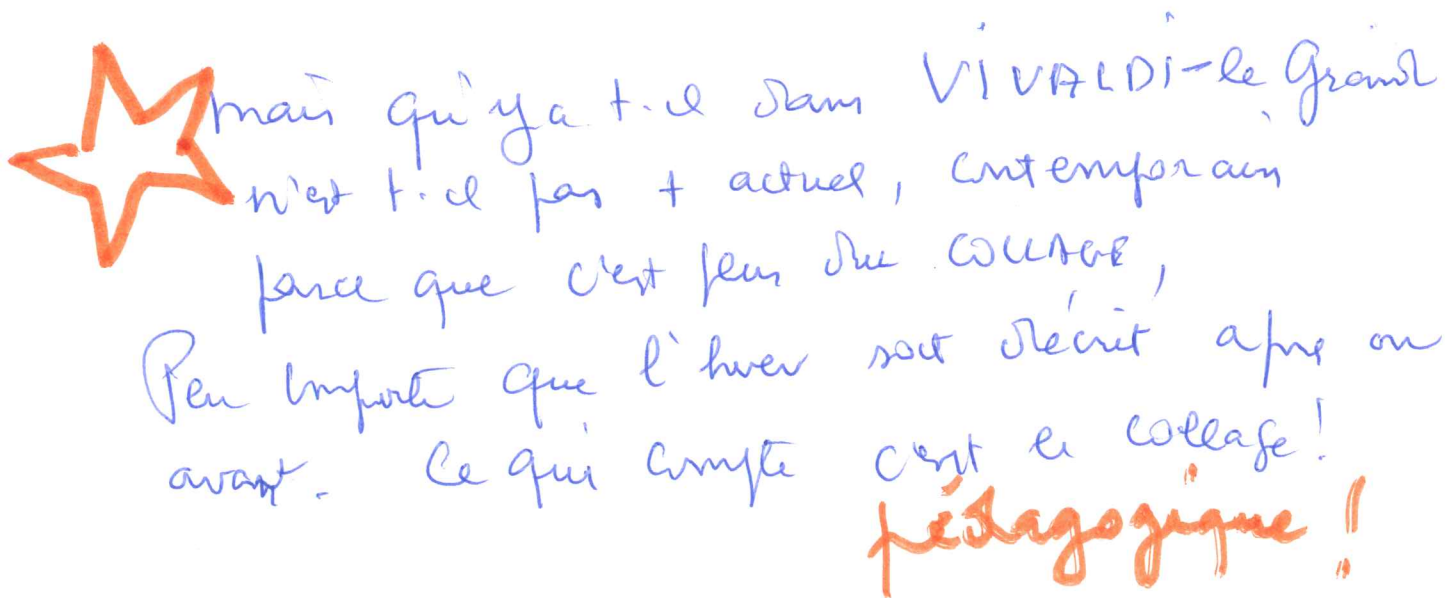 mais qu'y a t-il dans VIVALDI-le Grand
n'est t-il pas + actuel, contemporain
parce que c'est que du COLLAGE,
Peu importe que l'hiver soit décrit apres ou
avant. Ce qui compte c'est le collage!
pédagogique!